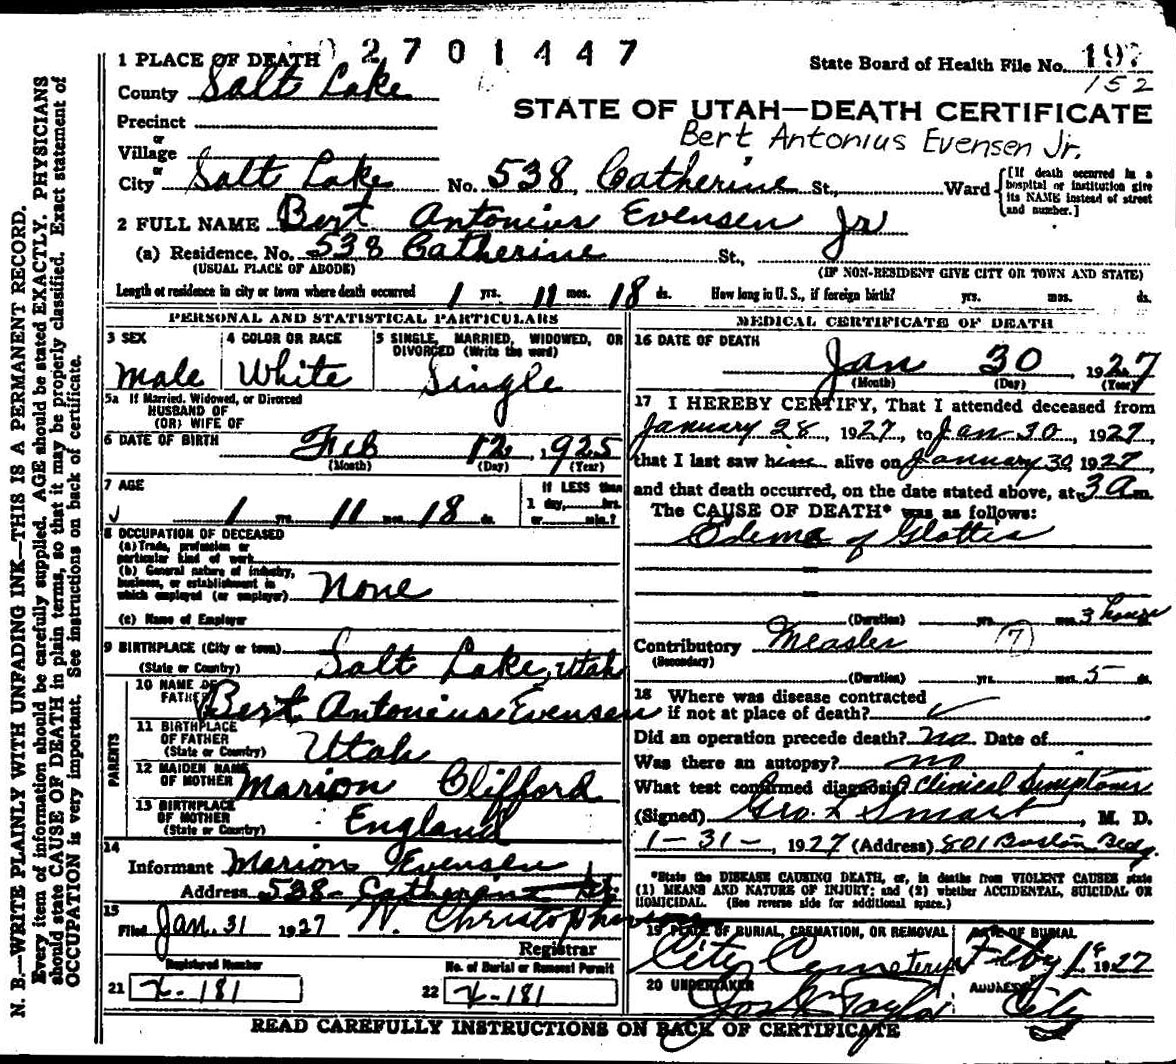 N. B.—WRITE PLAINLY WITH UNFADING INK—THIS IS A PERMANENT RECORD.
Every item of information should be carefully supplied. AGE should be stated EXACTLY. PHYSICIANS
should state CAUSE OF DEATH in plain terms, so that it may be properly classified. Exact statement of
OCCUPATION is very important. See instructions on back of certificate.
2701447
1 PLACE OF DEATH
State Board of Health File No. 197
152
County Salt Lake
STATE OF UTAH—DEATH CERTIFICATE
Precinct
Bert Antonius Evensen Jr.
or
Village
or
City Salt Lake No. 538 Catherine St., Ward
[If death occurred in a
hospital or institution give
its NAME instead of street
and number.]
2 FULL NAME Bert Antonius Evensen Jr
(a) Residence. No. 538 Catherine St.,
(USUAL PLACE OF ABODE) (IF NON-RESIDENT GIVE CITY OR TOWN AND STATE)
Length of residence in city or town where death occurred 1 yrs. 11 mos. 18 ds. How long in U. S., if foreign birth? yrs. mos. ds.
PERSONAL AND STATISTICAL PARTICULARS
3 SEX
Male
4 COLOR OR RACE
White
5 SINGLE, MARRIED, WIDOWED, OR
DIVORCED (Write the word)
Single
5a If Married, Widowed, or Divorced
HUSBAND OF
(OR) WIFE OF
6 DATE OF BIRTH Feb 12, 1925
(Month) (Day) (Year)
7 AGE
1 yrs. 11 mos. 18 ds.
If LESS than
1 day, hrs.
or min.?
8 OCCUPATION OF DECEASED
(a) Trade, profession or
particular kind of work
(b) General nature of industry,
business, or establishment in
which employed (or employer) None
(c) Name of Employer
9 BIRTHPLACE (City or town)
(State or Country) Salt Lake, Utah
PARENTS
10 NAME OF
FATHER Bert Antonius Evensen
11 BIRTHPLACE
OF FATHER
(State or Country) Utah
12 MAIDEN NAME
OF MOTHER Marion Clifford
13 BIRTHPLACE
OF MOTHER
(State or Country) England
14
Informant Marion Evensen
Address 538 Catherine St.
15
Filed Jan. 31 1927 W. Christopherson
Registrar
Registered Number
21 X-181
No. of Burial or Removal Permit
22 X-181
MEDICAL CERTIFICATE OF DEATH
16 DATE OF DEATH
Jan 30 1927
(Month) (Day) (Year)
17 I HEREBY CERTIFY, That I attended deceased from
January 28, 1927, to Jan 30, 1927
that I last saw him alive on January 30 1927,
and that death occurred, on the date stated above, at 3 a m.
The CAUSE OF DEATH* was as follows:
Edema of Glottis
(Duration) yrs. mos. 3 hours
Contributory Measles (7)
(Secondary)
(Duration) yrs. mos. 5 ds.
18 Where was disease contracted
if not at place of death?
Did an operation precede death? no Date of
Was there an autopsy? no
What test confirmed diagnosis? Clinical Symptoms
(Signed) Geo. L Smart, M. D.
1-31-, 1927 (Address) 801 Boston Bldg.
*State the DISEASE CAUSING DEATH, or, in deaths from VIOLENT CAUSES state
(1) MEANS AND NATURE OF INJURY; and (2) whether ACCIDENTAL, SUICIDAL OR
HOMICIDAL. (See reverse side for additional space.)
19 PLACE OF BURIAL, CREMATION, OR REMOVAL
City Cemetery
DATE OF BURIAL
Feby 1st 1927
20 UNDERTAKER
Jos Taylor
ADDRESS
City
READ CAREFULLY INSTRUCTIONS ON BACK OF CERTIFICATE